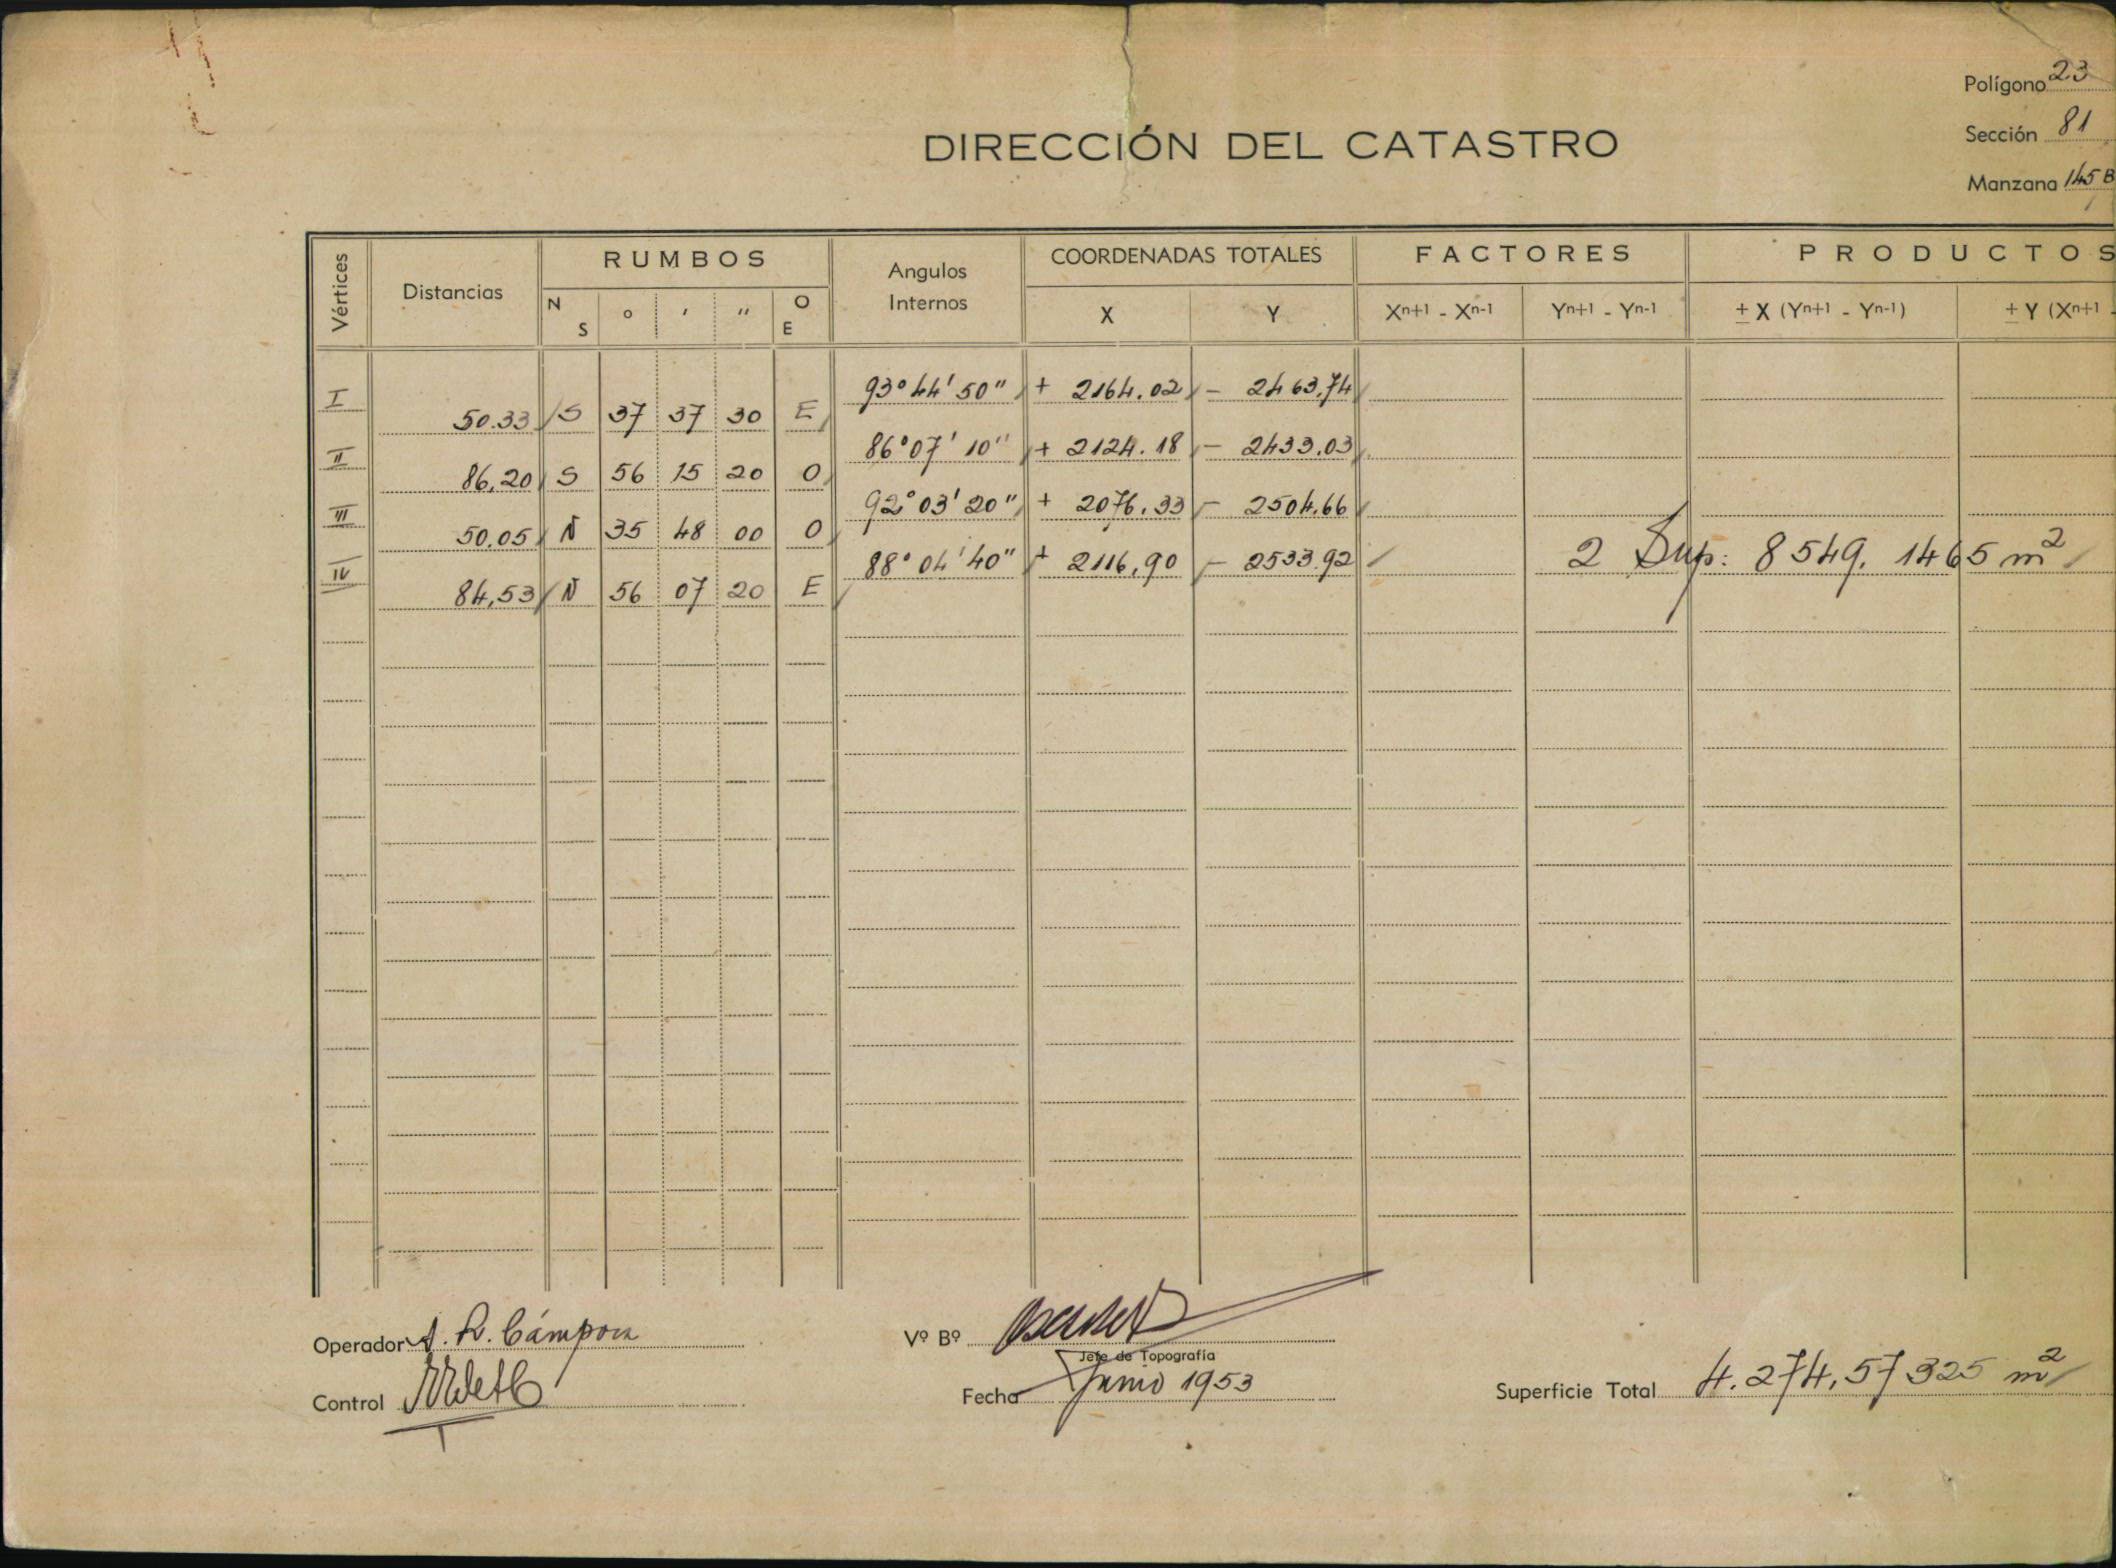 Polígono 23
DIRECCIÓN DEL CATASTRO
Sección 81
Manzana 145 B
Vértices Distancias RUMBOS Angulos Internos COORDENADAS TOTALES FACTORES PRODUCTOS
N S ° ' " O E X Y Xn+1 - Xn-1 Yn+1 - Yn-1 ± X (Yn+1 - Yn-1) ± Y (Xn+1 -
I 93° 44' 50" + 2164.02 - 2463,74
50.33 S 37 37 30 E
II 86° 07' 10" + 2124.18 - 2433.03
86,20 S 56 15 20 O
III 92° 03' 20" + 2076.33 - 2504.66
50.05 N 35 48 00 O
IV 88° 04' 40" + 2116,90 - 2533.92 2 Sup: 8549. 1465 m2
84,53 N 56 07 20 E
Operador A. R. Cámpora
Vº Bº
Jefe de Topografía
Control
Fecha Junio 1953
Superficie Total 4.274,57325 m2